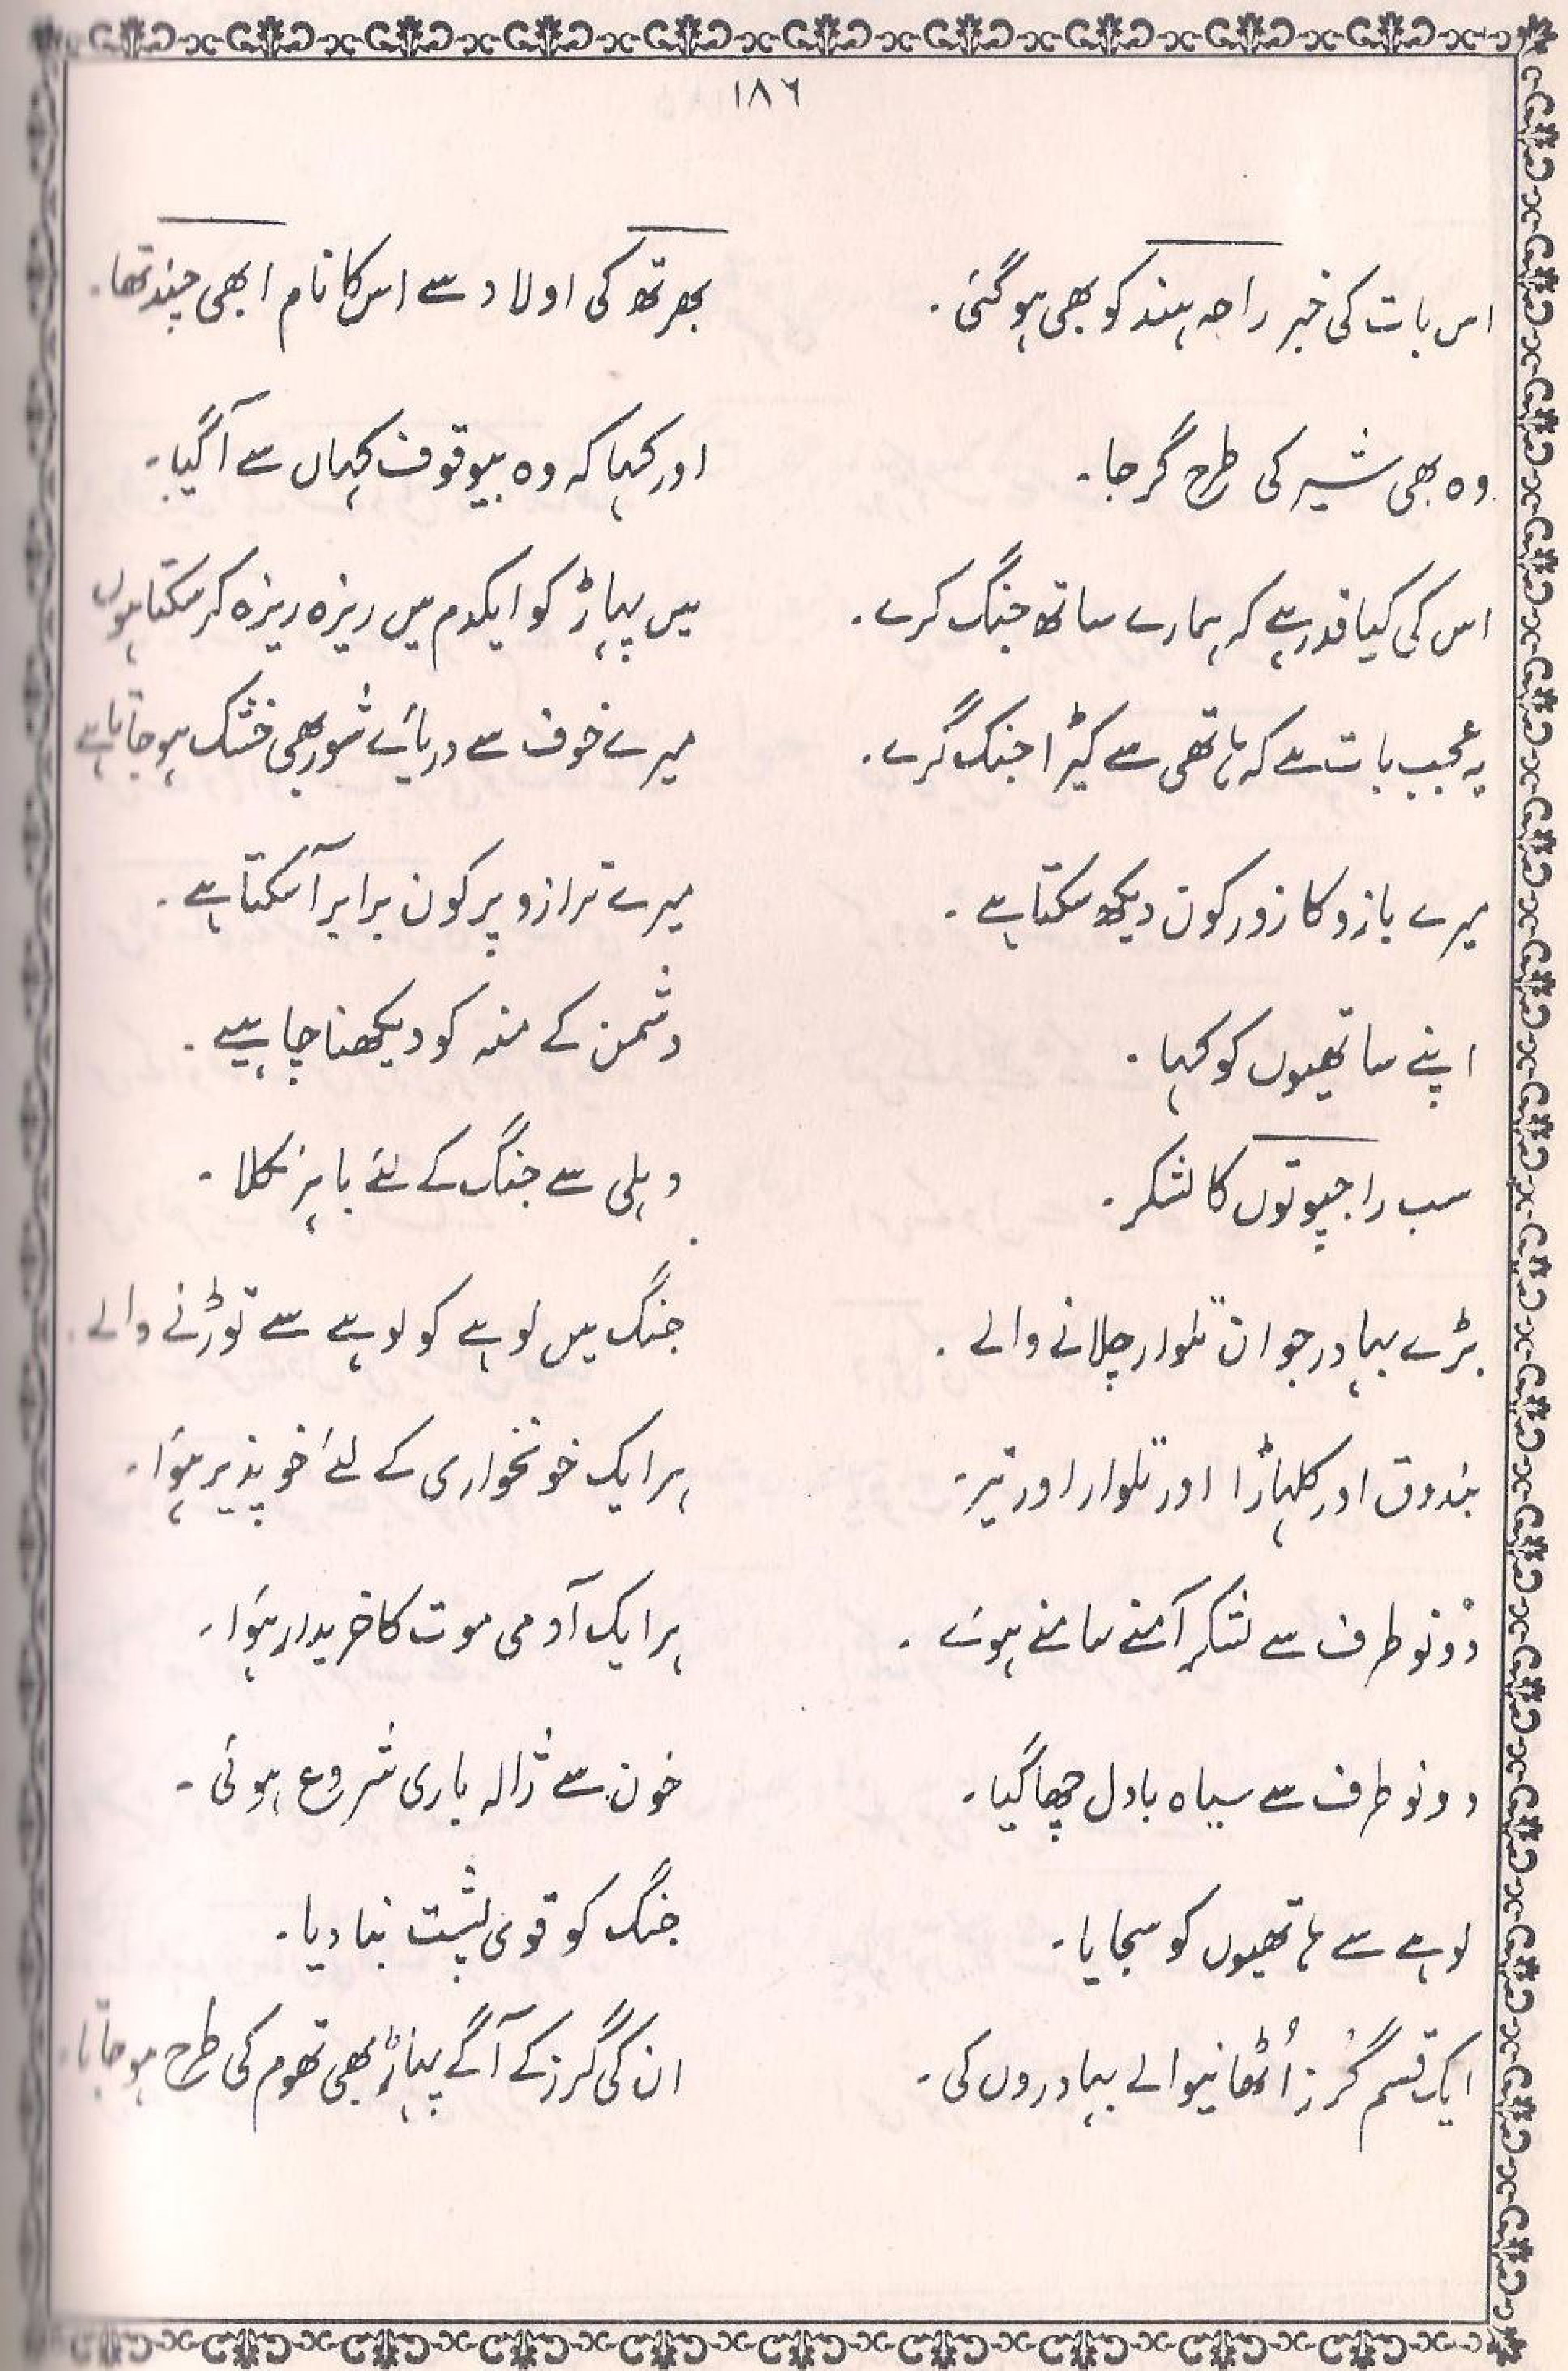 ١٨٦
اس بات کی خبر راجہ ہند کو بھی ہوگئی۔
بھرتھ کی اولاد سے اس کا نام ابھی چند تھا۔
وہ بھی شیر کی طرح گرجا۔
اور کہا کہ وہ بیوقوف کہاں سے آگیا۔
اس کی کیا قدر ہے کہ ہمارے ساتھ جنگ کرے۔
میں پہاڑ کو ایکدم میں ریزہ ریزہ کر سکتا ہوں
یہ عجیب بات ہے کہ ہاتھی سے کیڑا جنگ کرے۔
میرے خوف سے دریائے شور بھی خشک ہو جاتا ہے
میرے بازو کا زور کون دیکھ سکتا ہے۔
میرے ترازو پر کون برابر آسکتا ہے۔
اپنے ساتھیوں کو کہا۔
دشمن کے منہ کو دیکھنا چاہیے۔
سب راجپوتوں کا لشکر۔
دہلی سے جنگ کے لئے باہر نکلا۔
بڑے بہادر جوان تلوار چلانے والے۔
جنگ میں لوہے کو لوہے سے توڑنے والے۔
بندوق اور کلہاڑا اور تلوار اور تیر۔
ہر ایک خونخواری کے لئے خو پذیر ہؤا۔
دونو طرف سے لشکر آمنے سامنے ہوئے۔
ہر ایک آدمی موت کا خریدار ہؤا۔
دونو طرف سے سیاہ بادل چھا گیا۔
خون سے ژالہ باری شروع ہوئی۔
لوہے سے ہاتھیوں کو سجایا۔
جنگ کو قوی پشت بنا دیا۔
ایک قسم گُرز اُٹھانیوالے بہادروں کی۔
ان کی گرز کے آگے پہاڑ بھی تھوم کی طرح ہو جاتا۔